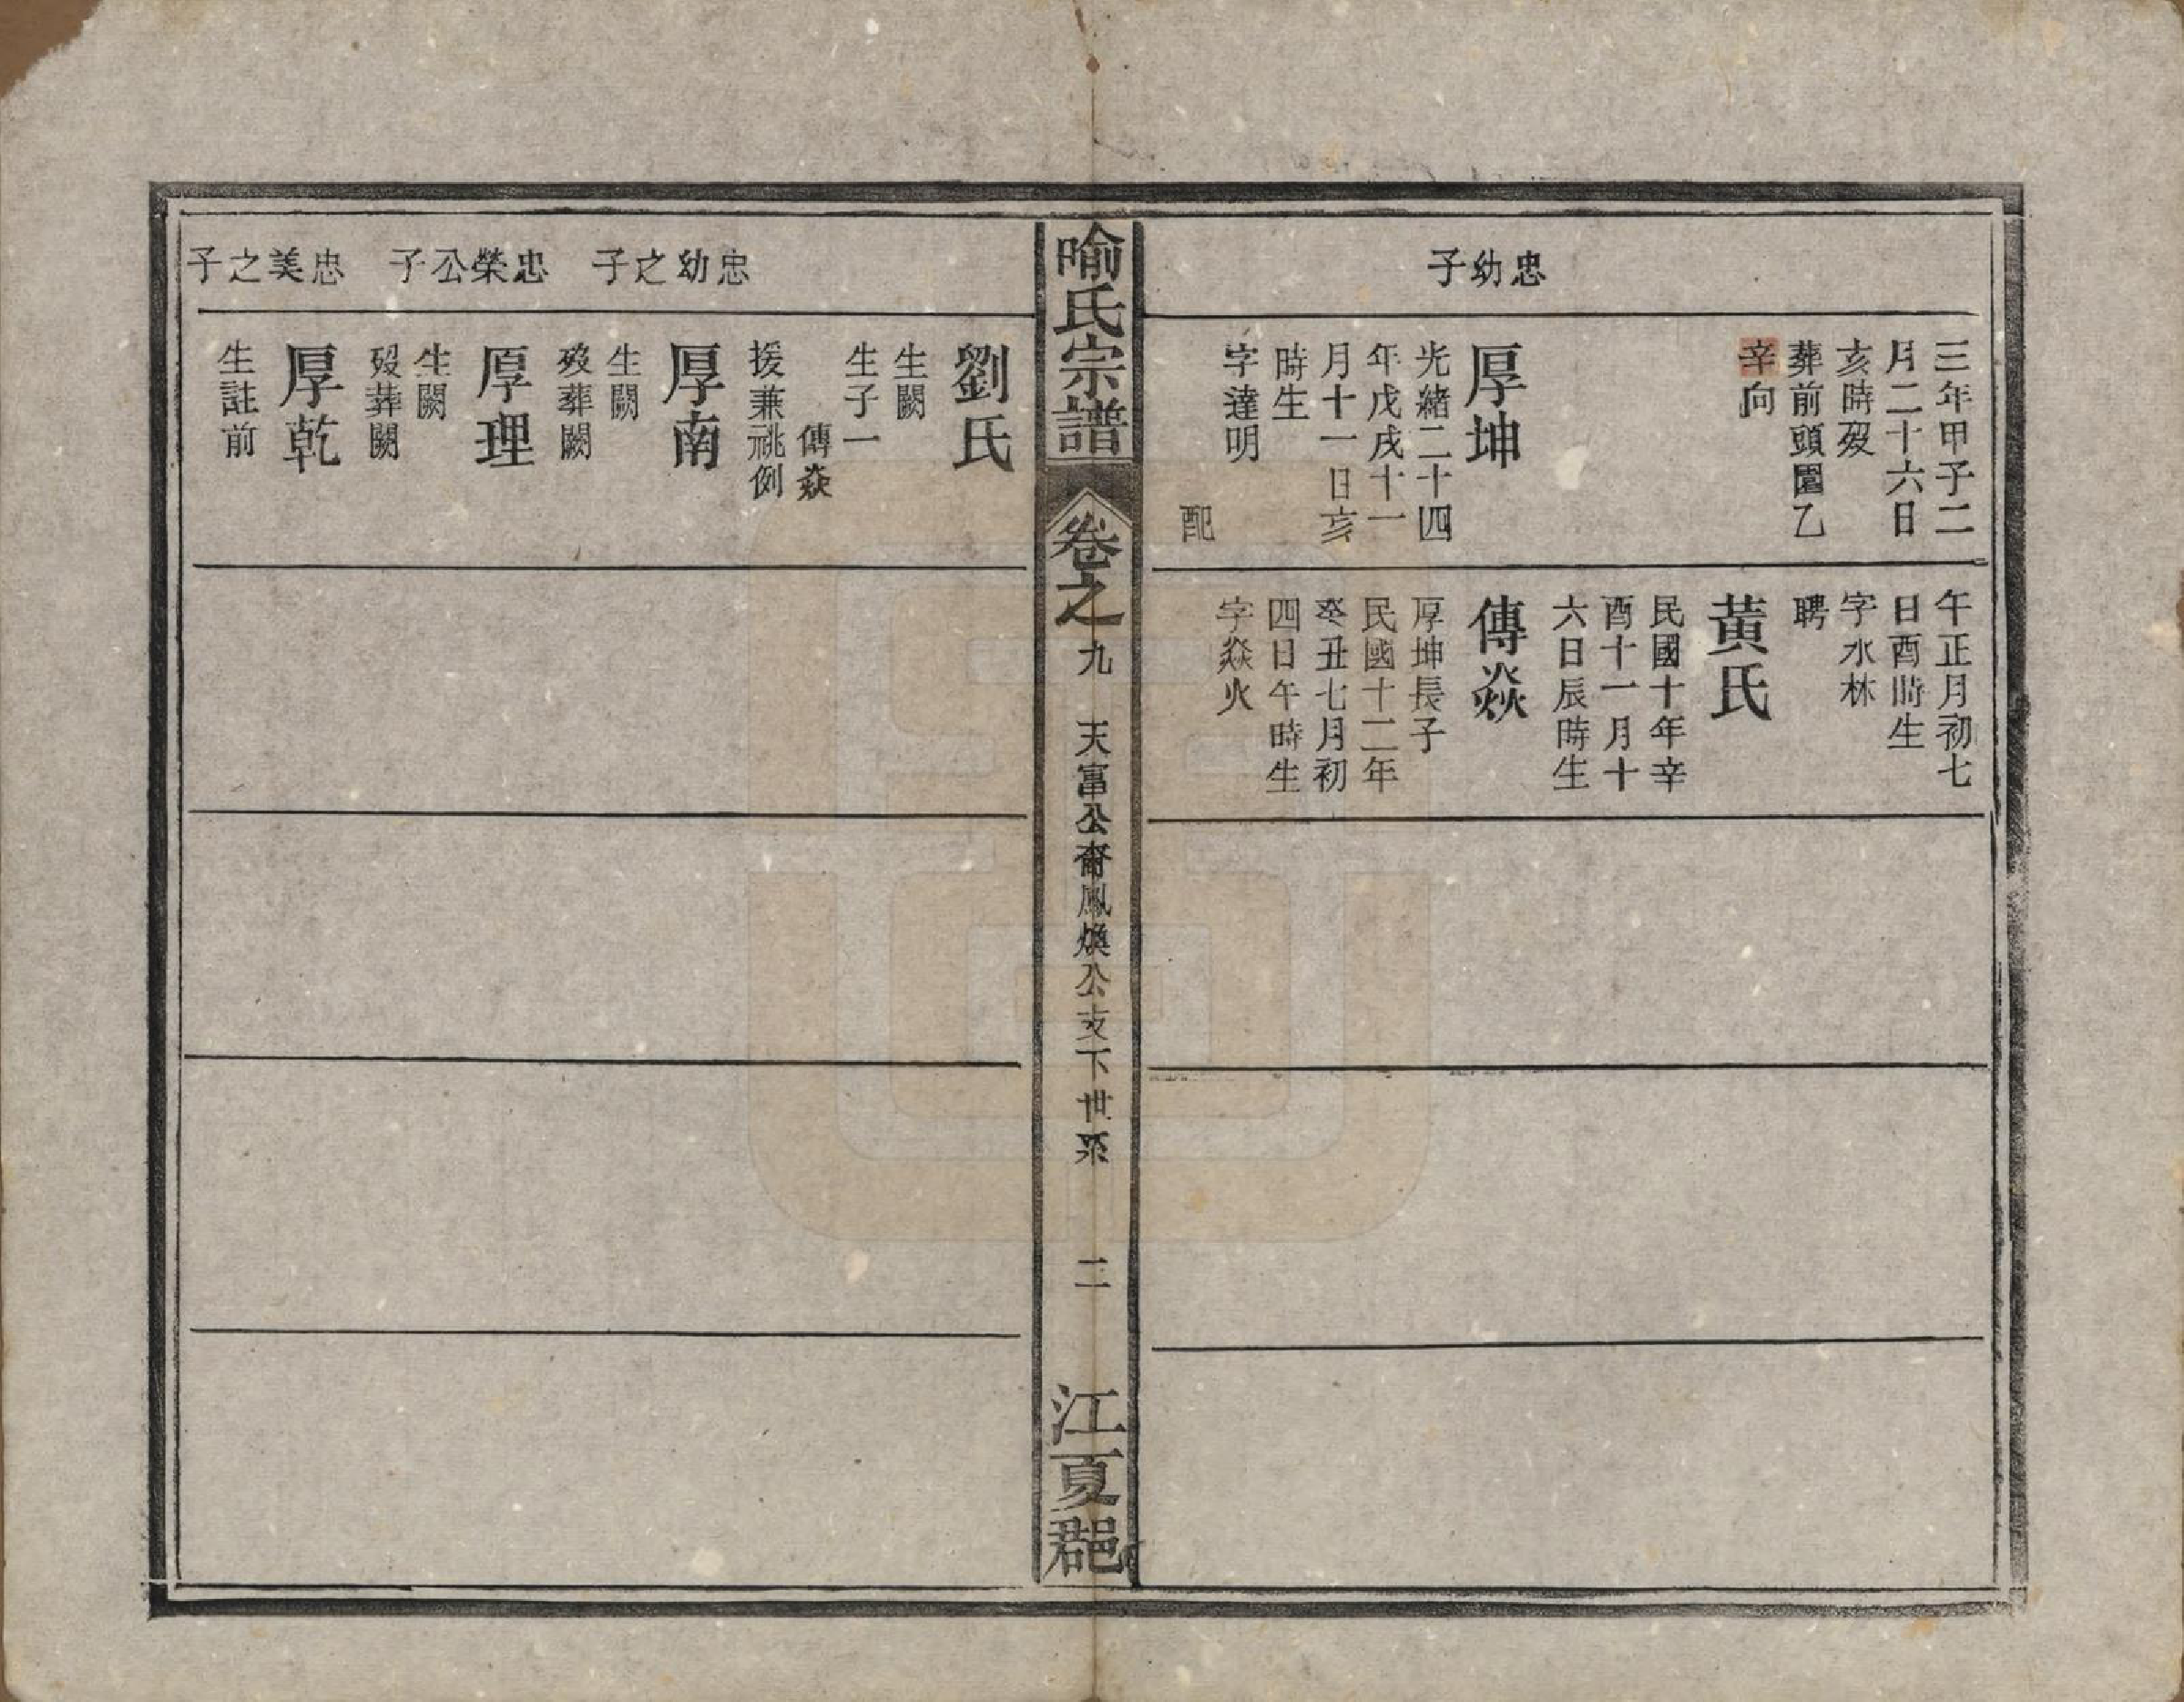 忠幼子
三年甲子二
月二十六日
亥時歿
葬前頭園乙
辛向
厚坤
光緒二十四
年戊戌十一
月十一日亥
時生
字達明
配
午正月初七
日酉時生
字水林
聘
黃氏
民國十年辛
酉十一月十
六日辰時生
傳焱
厚坤長子
民國十二年
癸丑七月初
四日午時生
字焱火
喻氏宗譜
卷之九
天富公裔鳳煥公支下世系
二
江夏郡
忠幼之子
忠榮公子
忠美之子
劉氏
生闕
生子一
傳焱
援兼祧例
厚南
生闕
歿葬闕
厚理
生闕
歿葬闕
厚乾
生註前